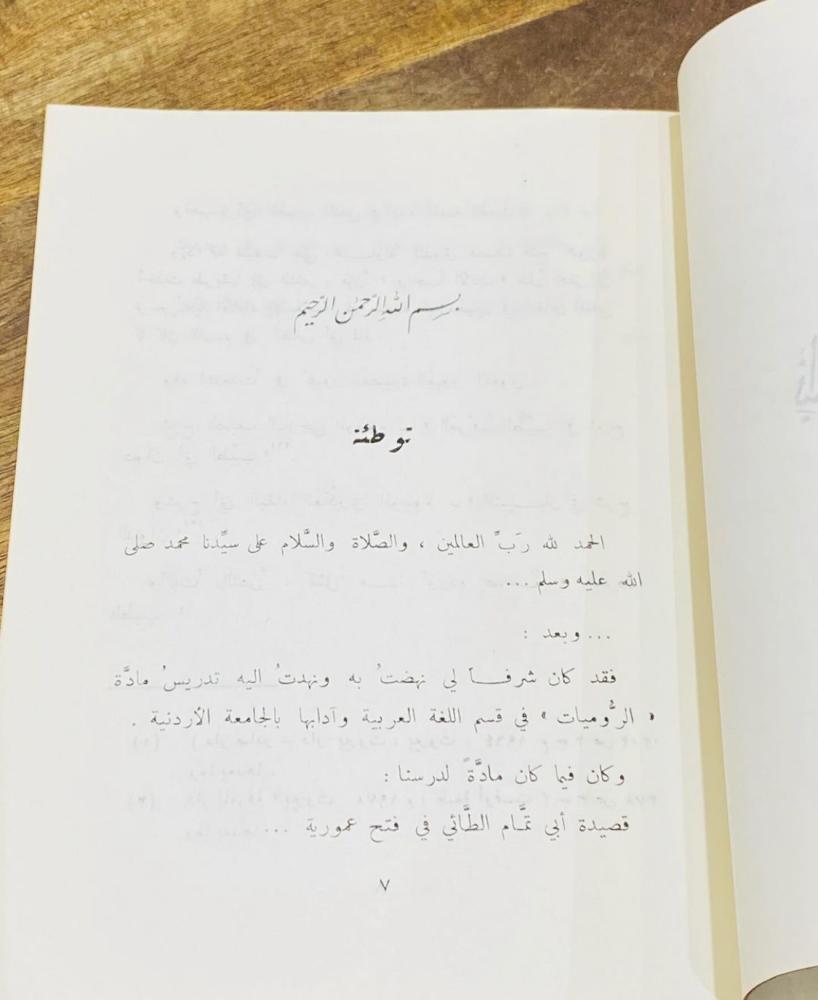 بسم الله الرّحمٰن الرّحيم
توطئة
الحمد لله ربِّ العالمين ، والصَّلاة والسَّلام على سيِّدنا محمد صلى
الله عليه وسلم...
... وبعد :
فقد كان شرفـــاً لي نهضتُ به ونهدتُ اليه تدريسُ مادَّة
« الرُّوميات » في قسم اللغة العربية وآدابها بالجامعة الأردنية .
وكان فيما كان مادَّةً لدرسنا :
قصيدة أبي تمَّام الطَّائي في فتح عمورية ...
٧